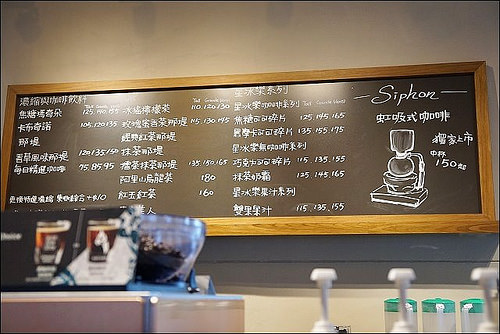 濃縮與咖啡飲料
焦糖瑪奇朵 125.140.155
卡布奇諾 105.120.135
那堤
香草風味那堤 120.135.150
每日精選咖啡 75.85.95
Tall Grande Venti
110.120.130
冰搖檸檬茶
玫瑰蜜香茶那堤 115.130.145
經典紅茶那堤
抹茶那堤
醇茶抹茶那堤 135.150.165
阿里山烏龍茶 180
紅玉紅茶 160
星冰樂系列
星冰樂咖啡系列 Tall Grande Venti
焦糖可可碎片 125.145.165
摩摩卡可可碎片 135.155.175
星冰樂無咖啡系列
巧克力可可碎片 115.135.155
抹茶奶霜 125.145.165
星冰樂果汁系列
雙果果汁 115.135.155
Siphon
虹吸式咖啡
獨家上市
中杯
150起